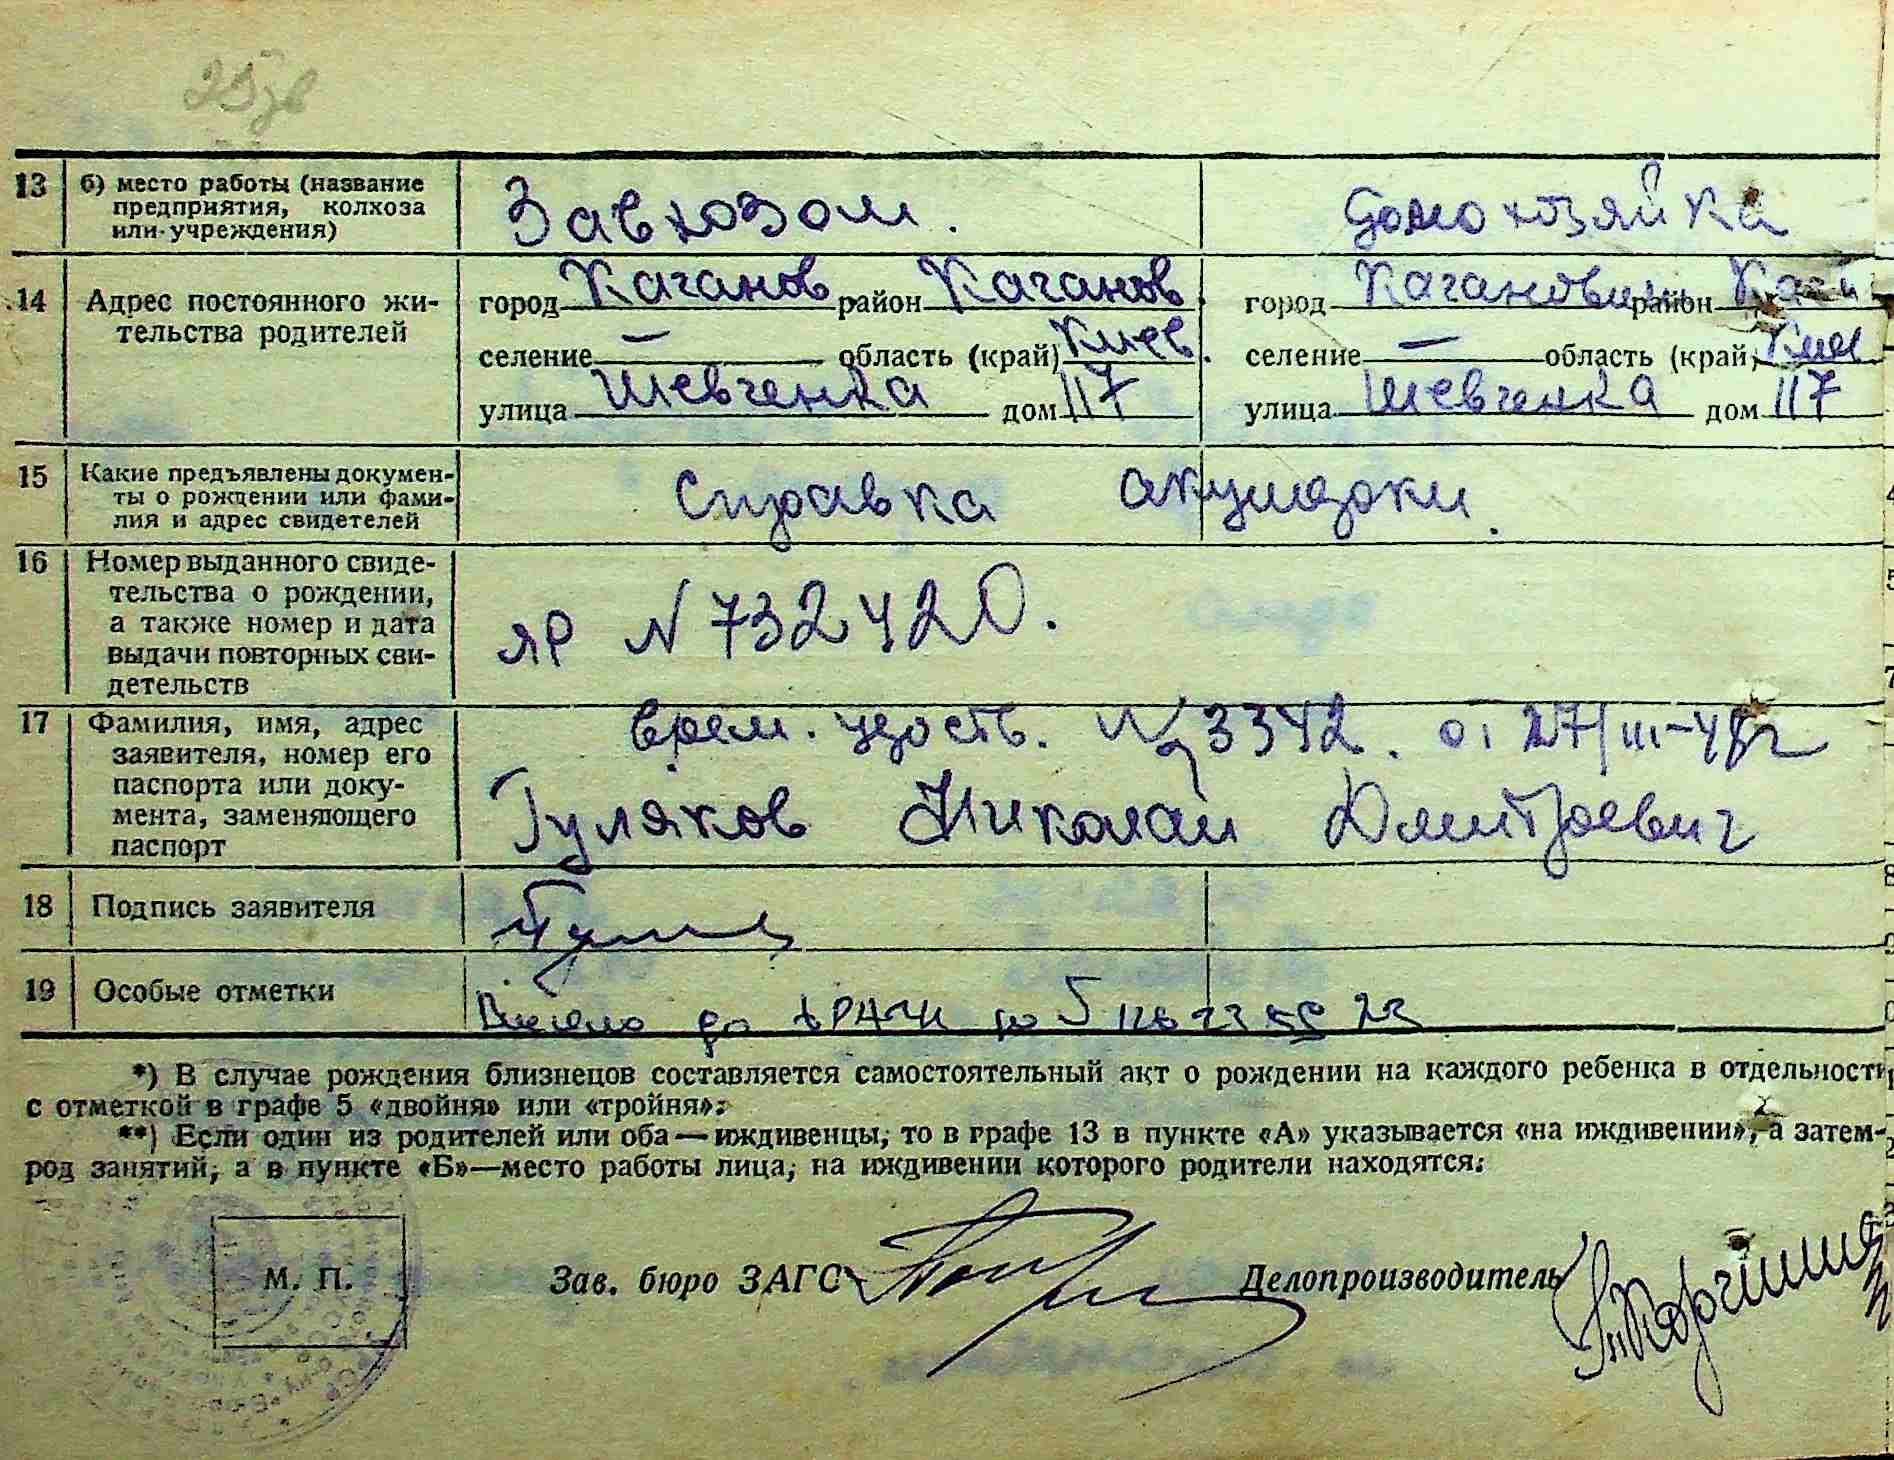 13 б) место работы (название предприятия, колхоза или учреждения) Завхозом. домохозяйка
14 Адрес постоянного жи-
тельства родителей
город Каганов район Каганов. город Каганович район
селение — область (край) Киев. селение — область (край) Киев
улица Шевченка дом 117 улица Шевченка дом 117
15 Какие предъявлены докумен-
ты о рождении или фами-
лия и адрес свидетелей
Справка акушерки.
16 Номер выданного свиде-
тельства о рождении,
а также номер и дата
выдачи повторных сви-
детельств
ЯР N 732420.
17 Фамилия, имя, адрес
заявителя, номер его
паспорта или доку-
мента, заменяющего
паспорт
врем. удоств. № 3342. от 27/III-48г
Гуляков Николай Дмитриевич
18 Подпись заявителя
19 Особые отметки
*) В случае рождения близнецов составляется самостоятельный акт о рождении на каждого ребенка в отдельности
с отметкой в графе 5 «двойня» или «тройня».
**) Если один из родителей или оба — иждивенцы, то в графе 13 в пункте «А» указывается «на иждивении», а затем-
род занятий, а в пункте «Б»—место работы лица, на иждивении которого родители находятся.
М. П. Зав. бюро ЗАГС Делопроизводитель